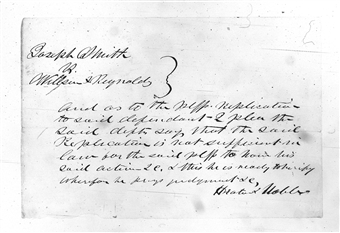 Joseph Smith
vs
Wilson & Reynolds
And as to the plff replication
to said defendant 2 plea the
said defts say that the said
Replication is not sufficient in
law for the said plff to have his
said action &c, & this he is ready to verify
wherefore he prays judgment &c,